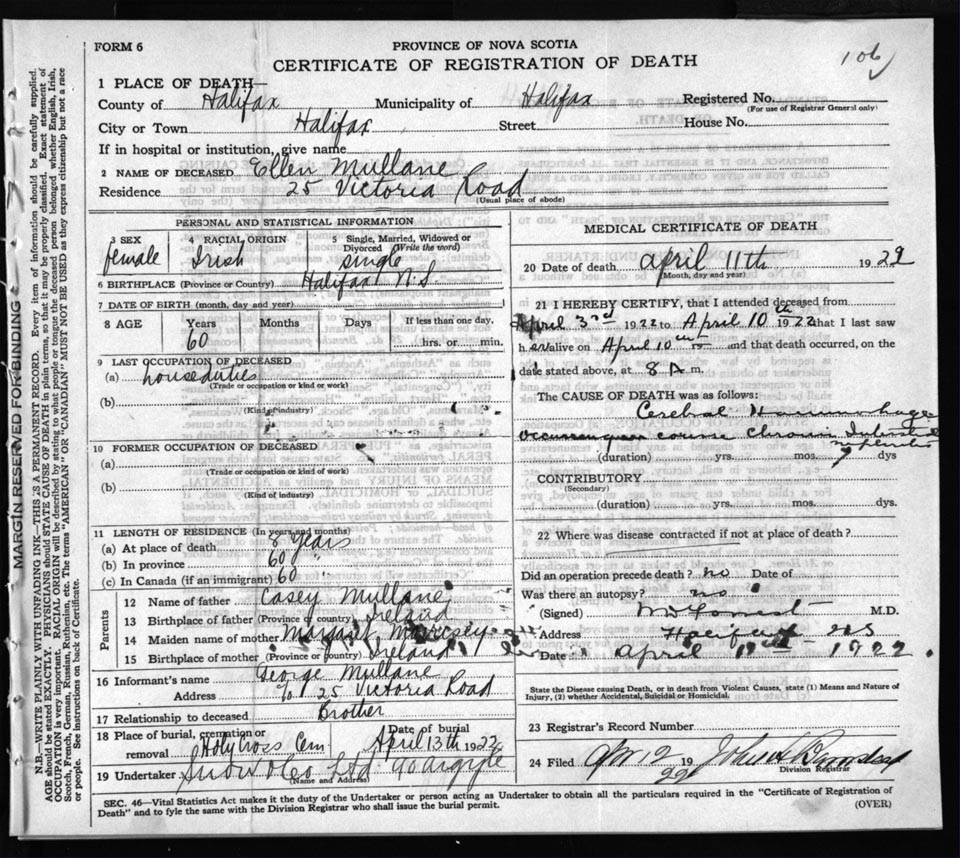 FORM 6
PROVINCE OF NOVA SCOTIA
CERTIFICATE OF REGISTRATION OF DEATH
106
1 PLACE OF DEATH—
County of Halifax Municipality of Halifax Registered No.
(For use of Registrar General only)
City or Town Halifax Street House No.
If in hospital or institution, give name
2 NAME OF DECEASED Ellen Mullane
Residence 25 Victoria Road
(Usual place of abode)
PERSONAL AND STATISTICAL INFORMATION
3 SEX 4 RACIAL ORIGIN 5 Single, Married, Widowed or Divorced (Write the word)
female Irish single
6 BIRTHPLACE (Province or Country) Halifax N.S.
7 DATE OF BIRTH (month, day and year)
8 AGE Years Months Days If less than one day,
60 hrs. or min.
9 LAST OCCUPATION OF DECEASED
(a) house duties
(Trade or occupation or kind or work)
(b)
(Kind of industry)
10 FORMER OCCUPATION OF DECEASED
(a)
(Trade or occupation or kind of work)
(b)
(Kind of industry)
11 LENGTH OF RESIDENCE (In years and months)
(a) At place of death 8 years
(b) In province 60 "
(c) In Canada (if an immigrant) 60 "
Parents
12 Name of father Casey Mullane
13 Birthplace of father (Province or country) Ireland
14 Maiden name of mother Margaret
15 Birthplace of mother (Province or country) Ireland
16 Informant's name George Mullane
Address c/o 25 Victoria Road
17 Relationship to deceased Brother
18 Place of burial, cremation or removal Holy Cross Cem Date of burial April 13th 1922
19 Undertaker Snow & Co Ltd 90 Argyle
(Name and Address)
MEDICAL CERTIFICATE OF DEATH
20 Date of death April 11th 1922
(Month, day and year)
21 I HEREBY CERTIFY, that I attended deceased from
April 3rd 1922 to April 10th 1922 that I last saw
her alive on April 10th and that death occurred, on the
date stated above, at 8 A m.
The CAUSE OF DEATH was as follows:
Cerebral Haemorrhage
course Chronic Interstitial
nephritis
(duration) yrs. mos. 7 dys
CONTRIBUTORY
(Secondary)
(duration) yrs. mos. dys.
22 Where was disease contracted if not at place of death?
Did an operation precede death? no Date of
Was there an autopsy? no
(Signed) M.D.
Address Halifax NS
Date April 1922
State the Disease causing Death, or in death from Violent Causes, state (1) Means and Nature of
Injury, (2) whether Accidental, Suicidal or Homicidal.
23 Registrar's Record Number
24 Filed Apr 12 19 22 John
Division Registrar
SEC. 46—Vital Statistics Act makes it the duty of the Undertaker or person acting as Undertaker to obtain all the particulars required in the "Certificate of Registration of
Death" and to fyle the same with the Division Registrar who shall issue the burial permit.
(OVER)
MARGIN RESERVED FOR BINDING
N.B.—WRITE PLAINLY WITH UNFADING INK—THIS IS A PERMANENT RECORD. Every item of information should be carefully supplied.
AGE should be stated EXACTLY. PHYSICIANS should STATE CAUSE OF DEATH in plain terms, so that it may be properly classified. Exact statement of
OCCUPATION is very important. RACIAL ORIGIN will be described by stating to what people or tongue the deceased person belonged whether English, Irish,
Scotch, French, German, Russian, Ruthenian, etc. The terms "AMERICAN" OR "CANADIAN" MUST NOT BE USED as they express citizenship but not a race
or people. See instructions on back of Certificate.